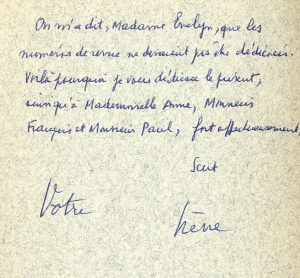 On m'a dit, Madame Evelyn, que les
numéros de revue ne devaient pas être dédicacés.
Voilà pourquoi je vous dédicace le présent,
ainsi qu'à Mademoiselle Anne, Monsieur
François et Monsieur Paul, fort affectueusement,
Votre